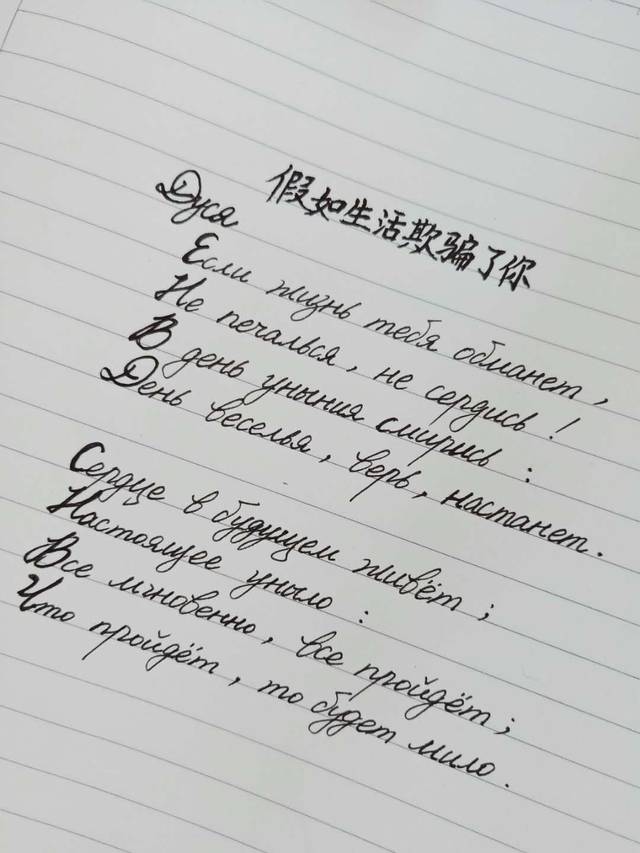 假如生活欺骗了你
Дуся
Если жизнь тебя обманет,
Не печалься, не сердись!
В день уныния смирись:
День веселья, верь, настанет.
Сердце в будущем живёт;
Настоящее уныло:
Все мгновенно, все пройдёт;
Что пройдёт, то будет мило.